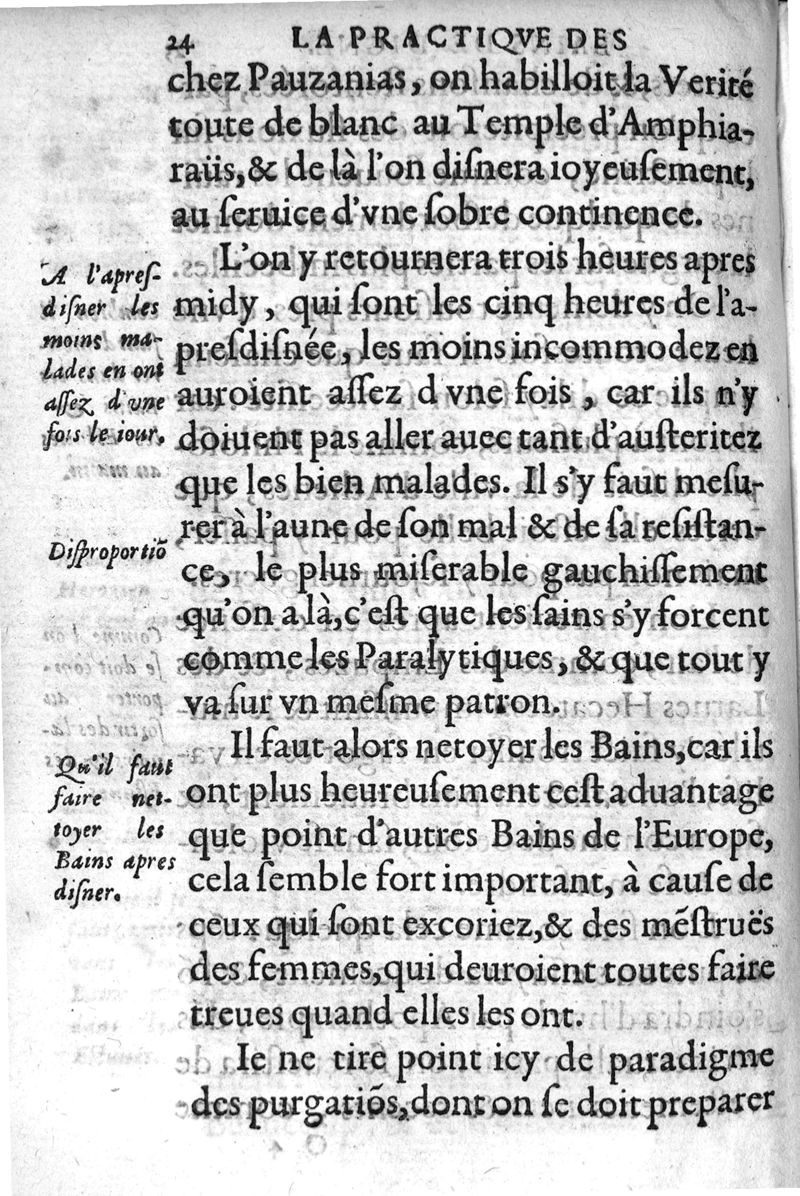 24 LA PRACTIQVE DES
chez Pauzanias, on habilloit la Verité
toute de blanc au Temple d'Amphia-
raüs, & de là l'on diſnera ioyeuſement,
au ſeruice d'vne ſobre continence.
L'on y retournera trois heures apres
midy, qui ſont les cinq heures de l'a-
preſdiſnée, les moins incommodez en
auroient aſſez d vne fois, car ils n'y
doiuent pas aller auec tant d'auſteritez
que les bien malades. Il s'y faut meſu-
rer à l'aune de ſon mal & de ſa reſiſtan-
ce, le plus miſerable gauchiſſement
qu'on a là, c'eſt que les ſains s'y forcent
comme les Paralytiques, & que tout y
va ſur vn meſme patron.
Il faut alors netoyer les Bains, car ils
ont plus heureuſement ceſt aduantage
que point d'autres Bains de l'Europe,
cela ſemble fort important, à cauſe de
ceux qui ſont excoriez, & des mẽſtruës
des femmes, qui deuroient toutes faire
treues quand elles les ont.
Ie ne tire point icy de paradigme
des purgatiõs, dont on ſe doit preparer
A l'apreſ-
diſner les
moins ma-
lades en ont
aſſez d'vne
fois le iour.
Diſproportiõ
Qu'il faut
faire net-
toyer les
Bains apres
diſner.